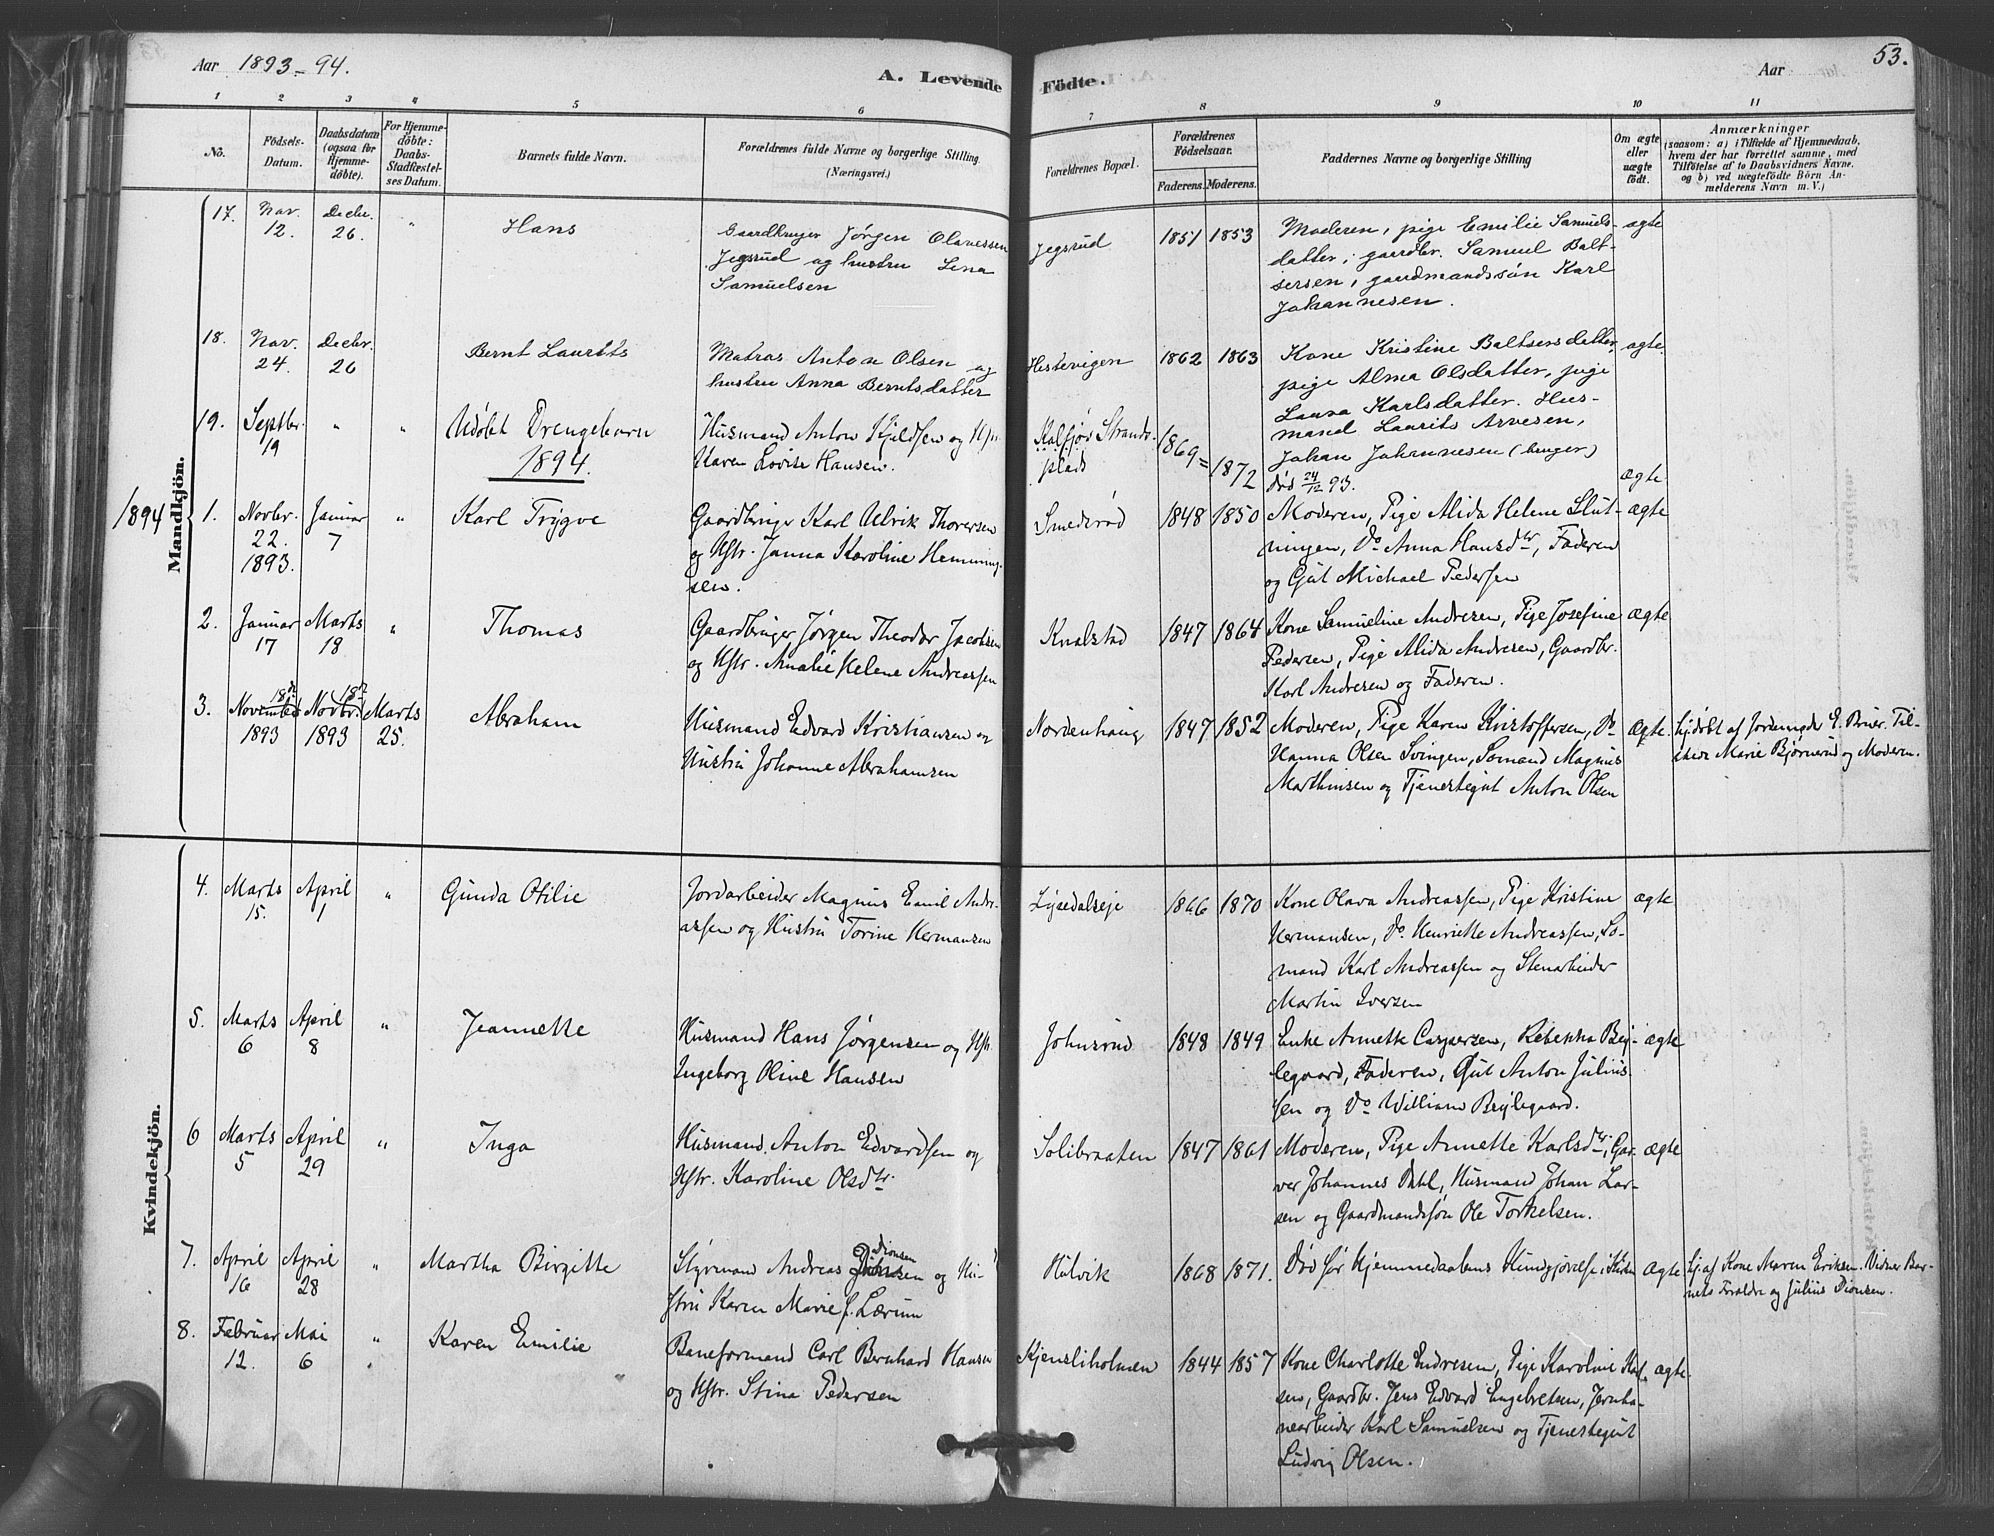 Aar 1893-94.
A. Levende Födte.
Aar
53.
1 2 3 4 5 6 7 8 9 10 11
No.
Födsels-Datum.
Daabsdatum (ogsaa for Hjemmedöbte).
For Hjemmedöbte: Daabs-Stadfæstelses Datum.
Barnets fulde Navn.
Forældrenes fulde Navne og borgerlige Stilling. (Næringsvei.)
Forældrenes Bopæl.
Forældrenes Födselsaar.
Faderens. Moderens.
Faddernes Navne og borgerlige Stilling
Om ægte eller uægte födt.
Anmærkninger
(saasom: a) i Tilfælde af Hjemmedaab,
hvem der har forrettet samme, med
Tilföielse af to Daabsvidners Navne.
og b) ved uægtefödte Börn An-
melderens Navn m. V.)
Mandkjön.
17. Nov. 12. Decbr. 26. "
Hans
Gaardbruger Jørgen Olavessen
Jegsrud og hustru Lena
Samuelsen
Jegsrud
1851 1853
Moderen, pige Emilie Samuels-
datter, gaardbr. Samuel Balt-
sersen, gaardmandssøn Karl
Johannesen.
ægte
18. Nov. 24. Decbr. 26
Bernt Laurits
Matros Anton Olsen og
hustru Anna Berntsdatter
Hestevigen
1862 1863
Kone Kristine Baltsersdatter,
pige Alma Olsdatter, pige
Laura Karlsdatter. Hus-
mand Laurits Arvesen,
Johan Johannesen (bruger)
ægte.
19. Septbr. 19 " "
Udøbt Drengebarn
Husmand Anton Kjeldsen og Hstr.
Karen Lovise Hansen.
Kalsjøv Strands-
plads
1869= 1872
død 24/12 93.
ægte
1894.
1894
1. Novbr. 22. 1893. Januar 7 "
Karl Trygve
Gaardbruger Karl Ulrik Thoresen
og Hstr. Janna Karoline Hemming-
sen.
Smederød
1848 1850
Moderen, Pige Alida Helene Slut-
ningen, Do Anna Hansdtr, Faderen
og Gut Michael Pedersen
ægte
2. Januar 17 Marts 18 "
Thomas
Gaardbruger Jørgen Theodor Jacobsen
og Hstr. Amalie Helene Andreassen
Knalstad
1847 1864
Kone Samueline Andresen, Pige Josefine
Pedersen, Pige Alida Andresen, Gaardbr.
Karl Andresen og Faderen.
ægte
3. November 18de 1893 Novbr. 18de 1893 Marts 25.
Abraham
Husmand Edvard Kristiansen og
Hustru Johanne Abrahamsen
Nordenhaug
1847 1852
Moderen, Pige Karen Kristoffersen, Do
Hanna Olsen Svingen, Sømand Magnus
Marthinsen og Tjenestegut Anton Olsen
ægte.
hj.døbt af Jordemoder E. Bruer. Til-
stede Marie Bjørnerud og Moderen.
Kvindekjön.
4. Marts 15. April 1 "
Gunda Otilie
Jordarbeider Magnus Emil Andre-
assen og Hustru Torine Hermansen
Lysedalseje
1866 1870
Kone Olava Andreassen, Pige Kristine
Hermansen, Do Henriette Andreassen, Sø-
mand Karl Andreassen og Stenarbeider
Martin Iversen
ægte
5. Marts 6 April 8 "
Jeannette
Husmand Hans Jørgensen og Hstr.
Ingeborg Oline Hansen
Johnsrud
1848 1849
Enke Annette Caspersen, Rebekka Bøj-
legaard, Faderen, Gut Anton Julius-
sen og Do William Bøjlegaard.
ægte
6 Marts 5 April 29 "
Inga
Husmand Anton Edvardsen og
Hstr. Karoline Olsdtr.
Solibraaten
1847 1861
Moderen, Pige Annette Karlsdtr, Gar-
ver Johannes Dahl, Husmand Johan Lar-
sen og Gaardmandsøn Ole Torkelsen.
ægte
7. April 16 April 28 "
Martha Birgitte
Styrmand Andreas Dionsen og Hu-
stru Karen Marie f. Lærum
Hulvik
1868 1871.
Død før Hjemmedaabens Kundgjørelse i Kirken
Ægte
hj. af Kone Maren Eriksen. Vidner Bar-
nets Forældre og Julius Dionsen.
8. Februar 12. Mai 6 "
Karen Emilie
Baneformand Carl Bernhard Hansen
og Hstr. Stina Pedersen
Kjensliholmen
1844 1857
Kone Charlotte Endresen, Pige Karoline Kal-
sen, Gaardbr. Jens Edvard Engebretsen, Jernba-
nearbeider Karl Samuelsen og Tjenestegut
Ludvig Olsen.
ægte